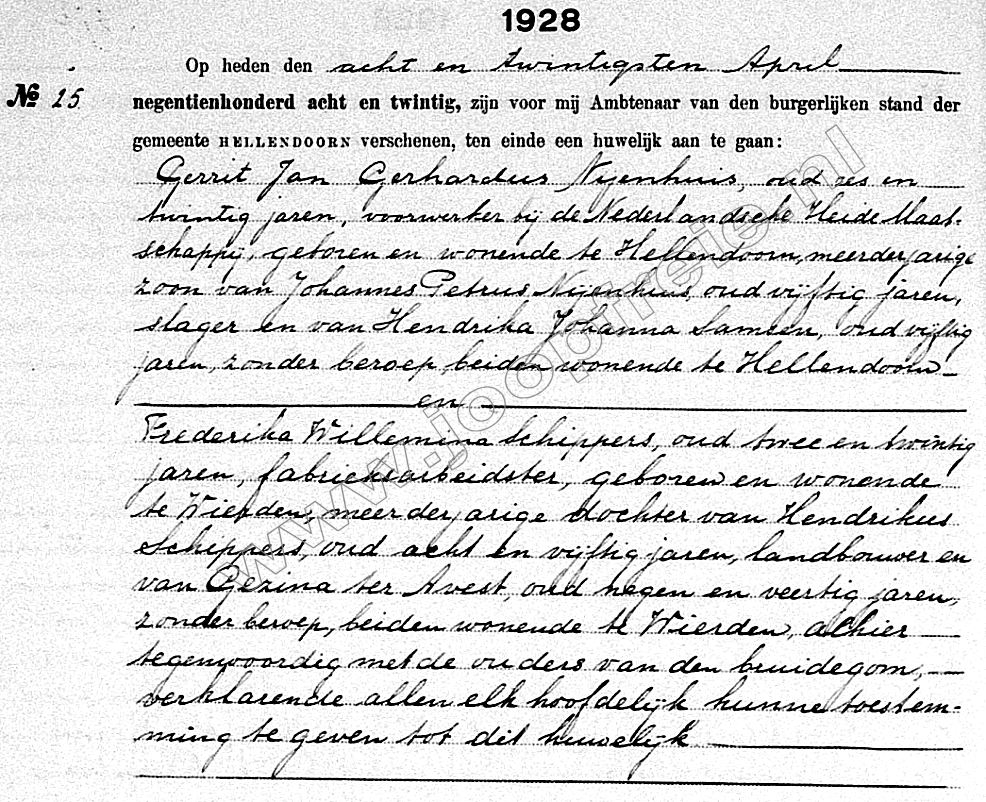 1928
Op heden den acht en twintigsten April
№ 25
negentienhonderd acht en twintig, zijn voor mij Ambtenaar van den burgerlijken stand der
gemeente HELLENDOORN verschenen, ten einde een huwelijk aan te gaan:
Gerrit Jan Gerhardus Nijenhuis, oud zes en
twintig jaren, voorwerker bij de Nederlandsche Heide Maat-
schappij, geboren en wonende te Hellendoorn, meerderjarige
zoon van Johannes Petrus Nijenhuis, oud vijftig jaren,
slager en van Hendrika Johanna Samsen, oud vijftig
jaren, zonder beroep, beiden wonende te Hellendoorn
en
Frederika Willemina Schippers, oud twee en twintig
jaren, fabrieksarbeidster, geboren en wonende
te Wierden, meerderjarige dochter van Hendrikus
Schippers, oud acht en vijftig jaren, landbouwer en
van Gezina ter Avest, oud negen en veertig jaren,
zonder beroep, beiden wonende te Wierden, alhier
tegenwoordig met de ouders van den bruidegom,
verklarende allen elk hoofdelijk hunne toestem-
ming te geven tot dit huwelijk
www.joopreie.nl